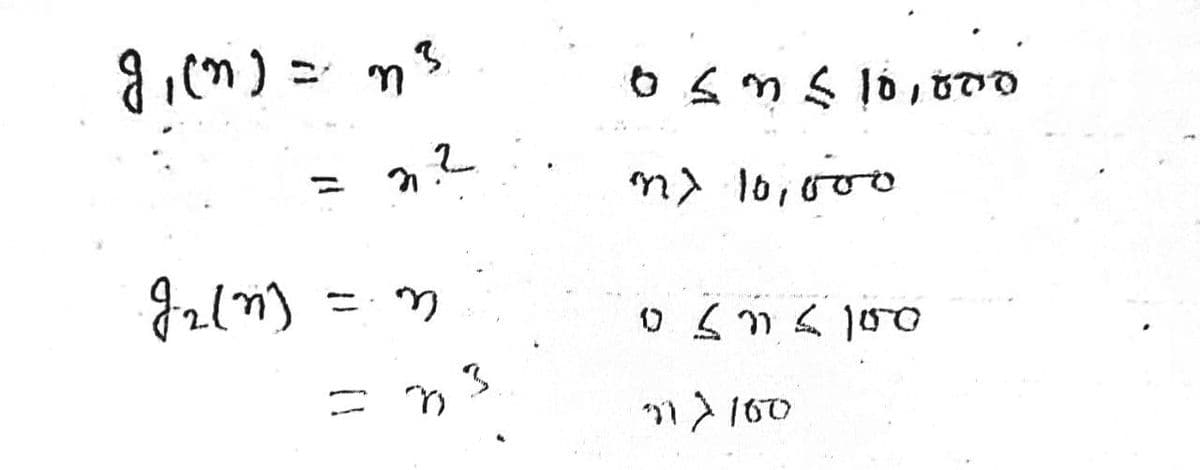 g₁(n) = n³ 0 ≤ n ≤ 10,000
= n² n > 10,000
g₂(n) = n 0 ≤ n ≤ 100
= n³ n > 100